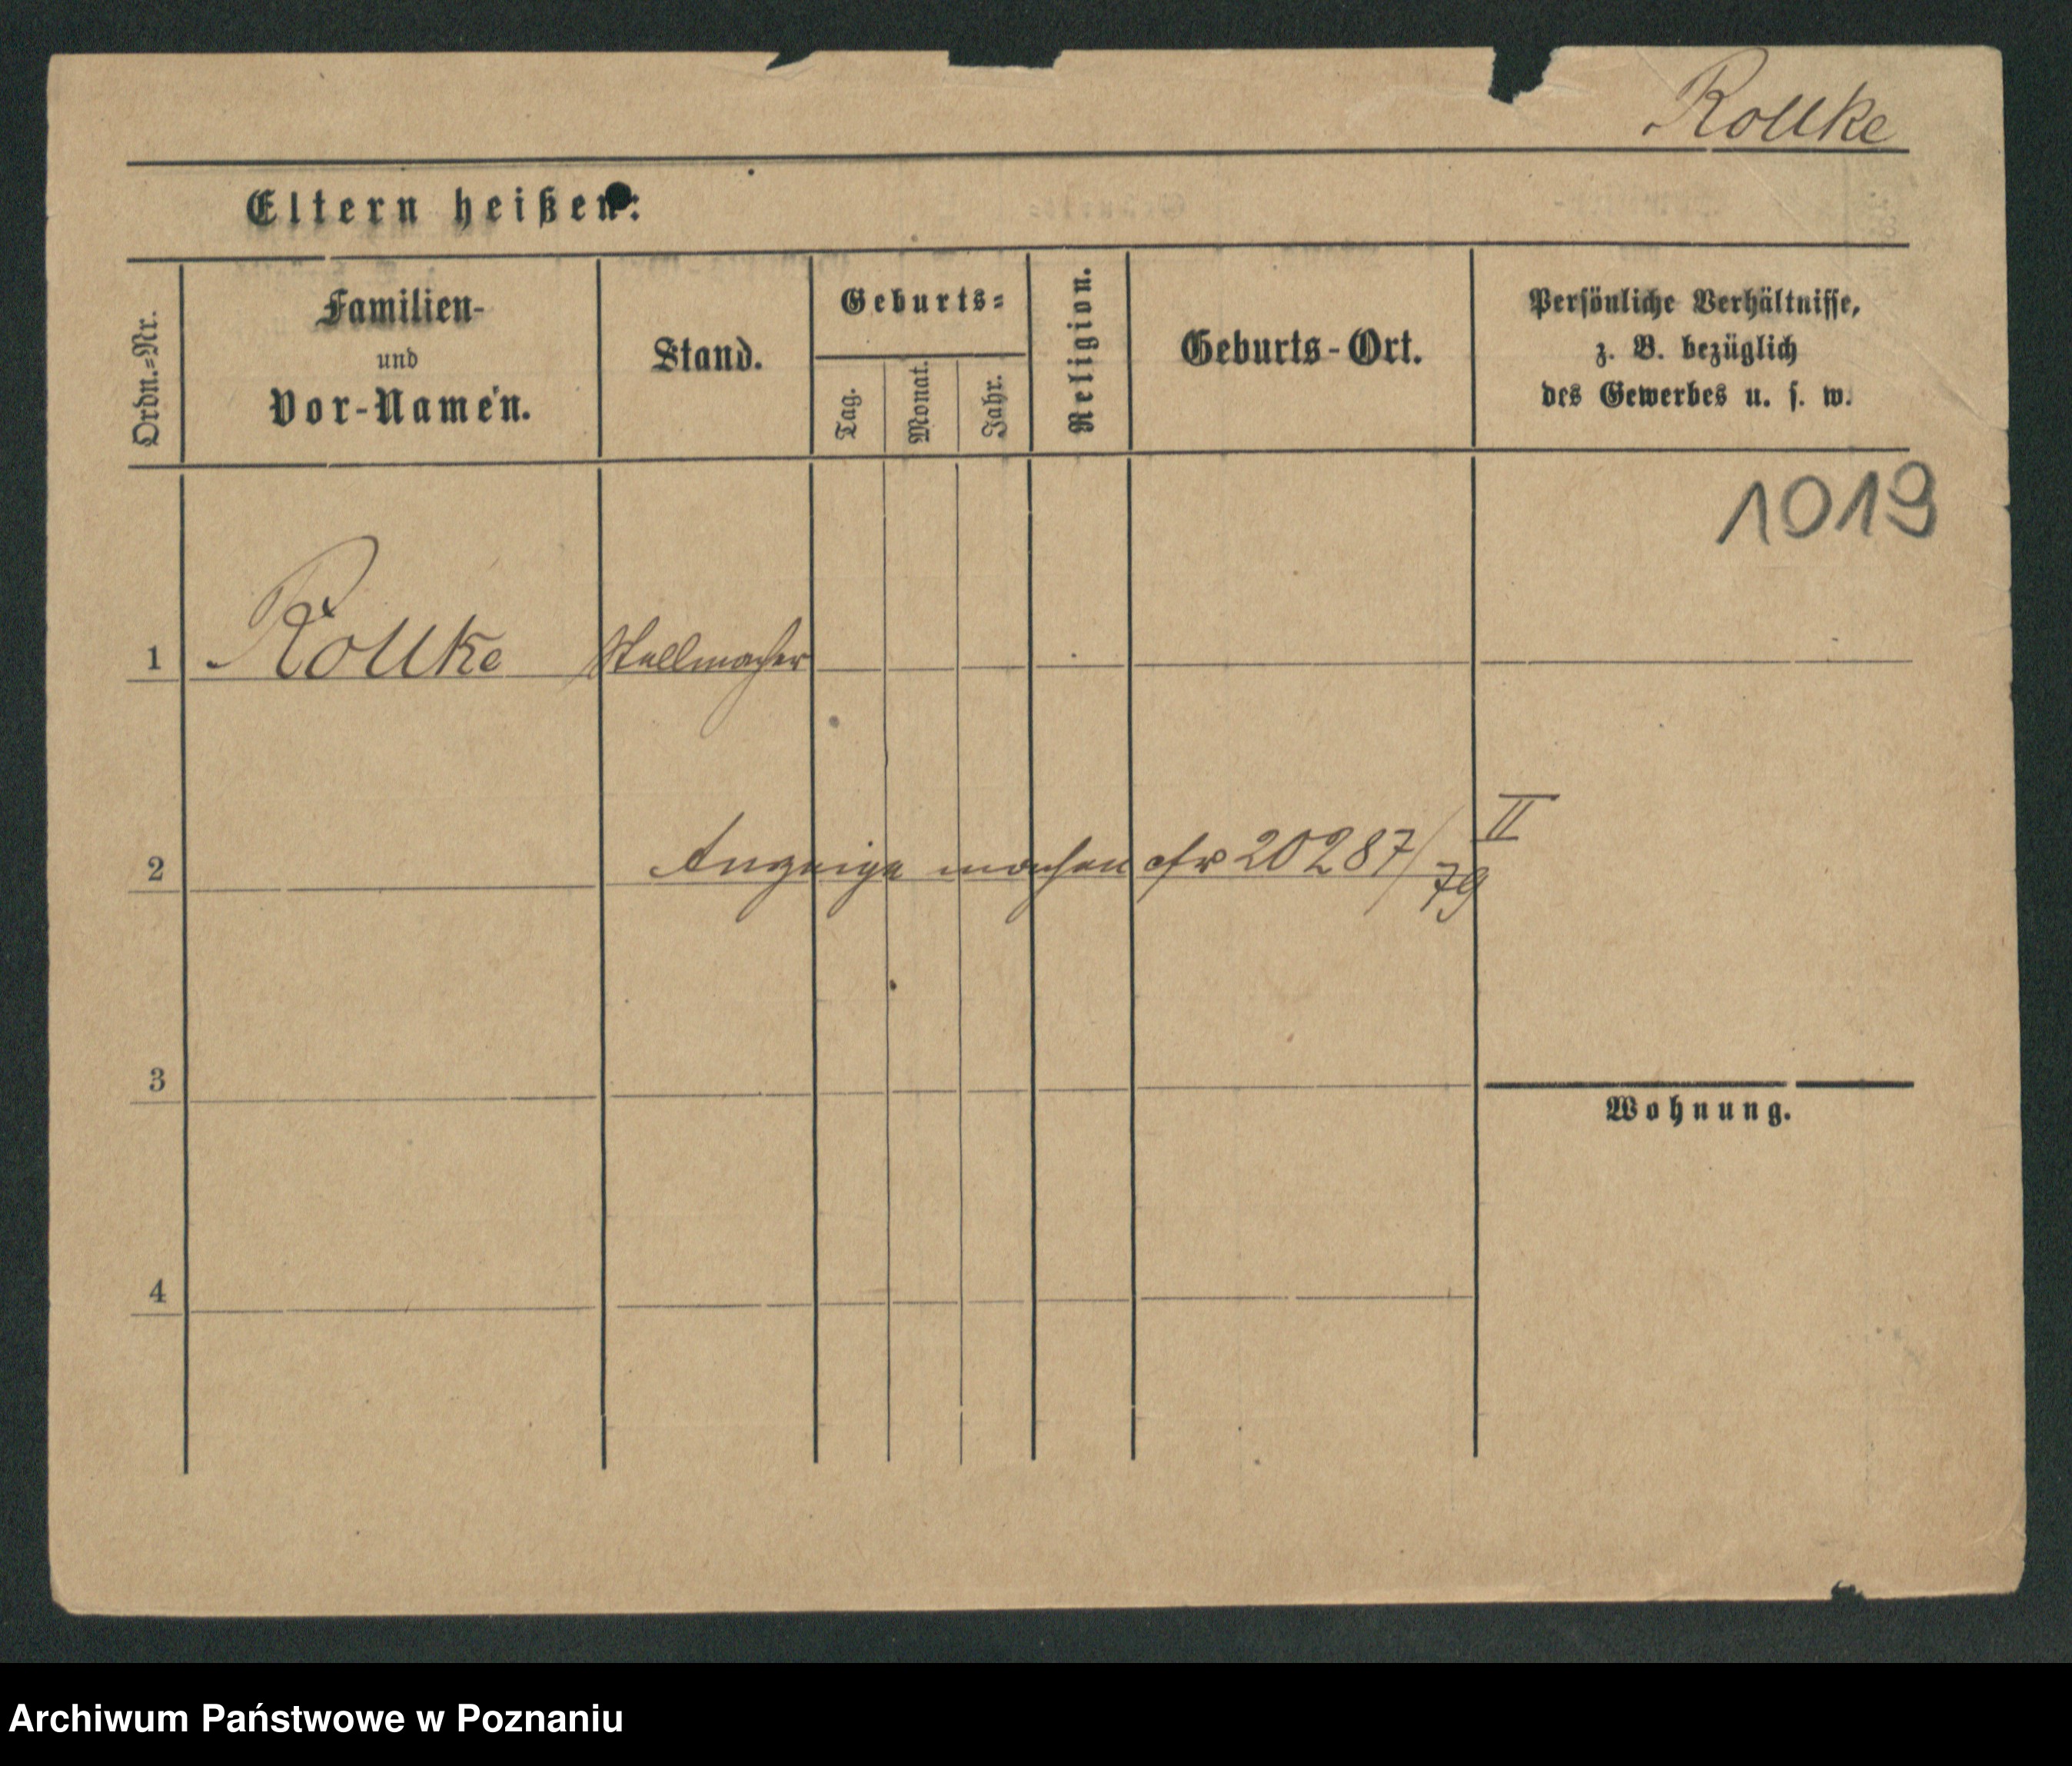 Rollke
Eltern heißen:
Ordn.=Nr.
Familien-
und
Vor-Namen.
Stand.
Geburts=
Tag.
Monat.
Jahr.
Religion.
Geburts-Ort.
Persönliche Verhältnisse,
z. B. bezüglich
des Gewerbes u. s. w.
1019
1 Rollke Stellmacher
2 Anzeige machen cfr 20287/79 II
3
Wohnung.
4
Archiwum Państwowe w Poznaniu